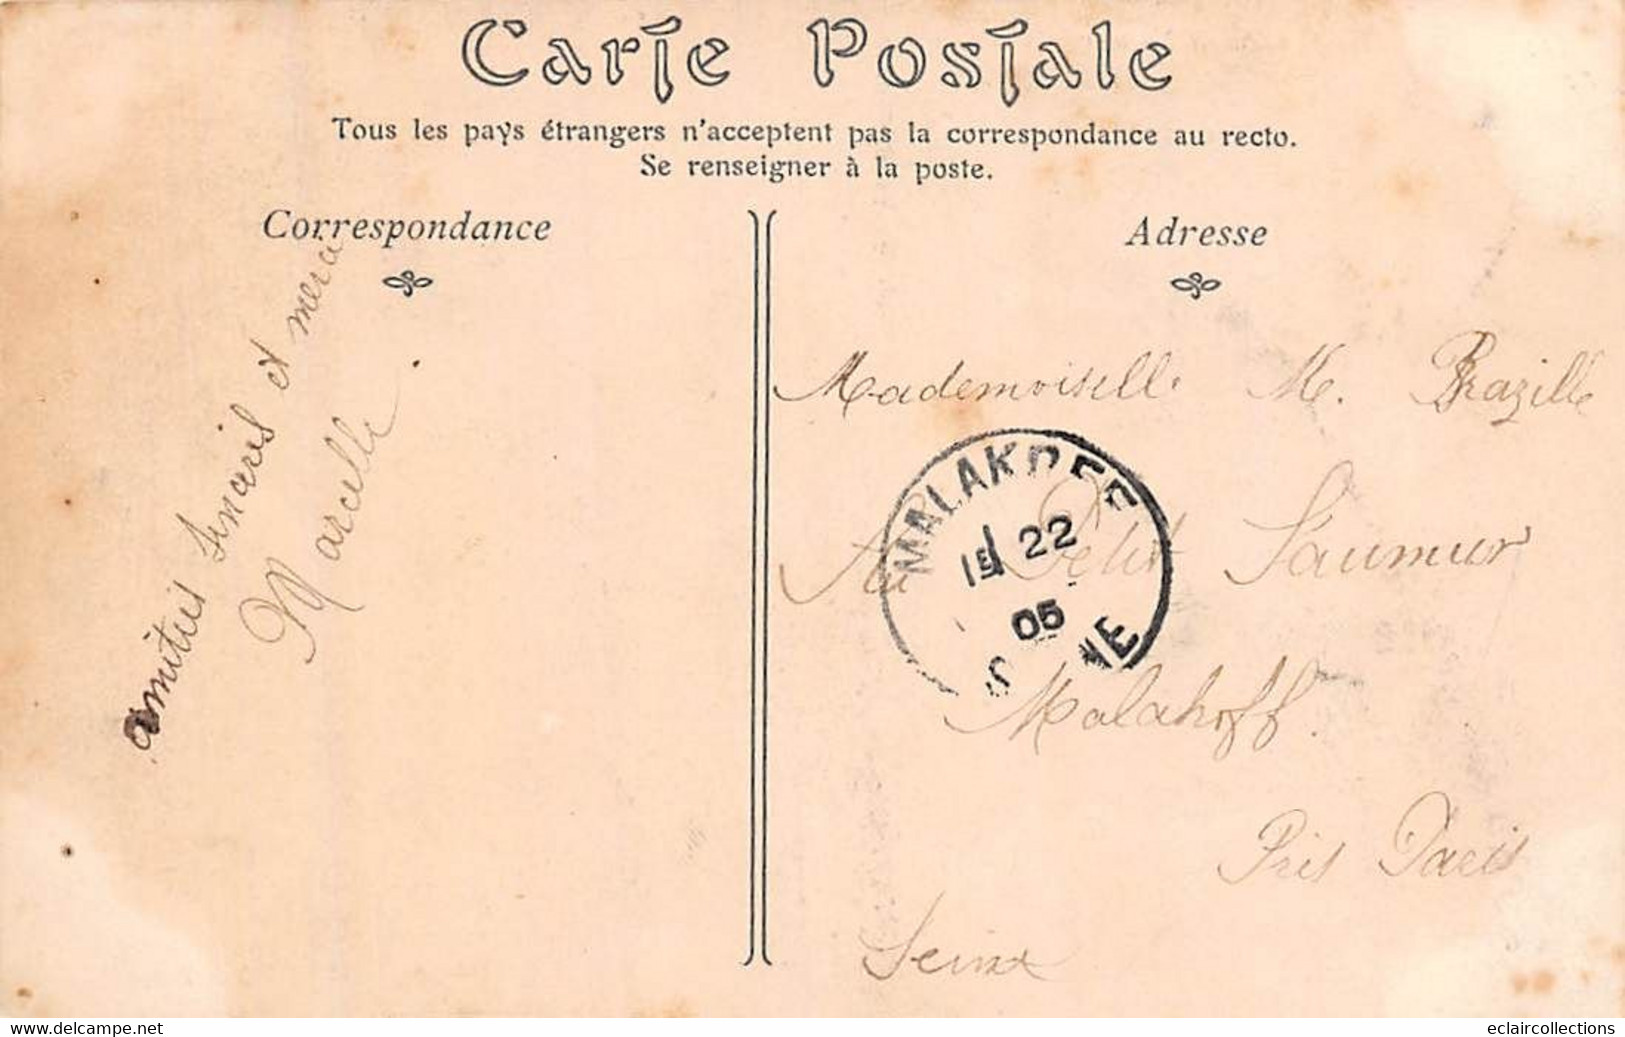 Carte Postale
Tous les pays étrangers n'acceptent pas la correspondance au recto.
Se renseigner à la poste.
Correspondance
Adresse
amitiés sincères et merci
Marcelle
Mademoiselle M. Brazille
Au Petit Saumur
Malakoff
Près Paris
Seine
MALAK
1E 22
05
www.delcampe.net
eclaircollections